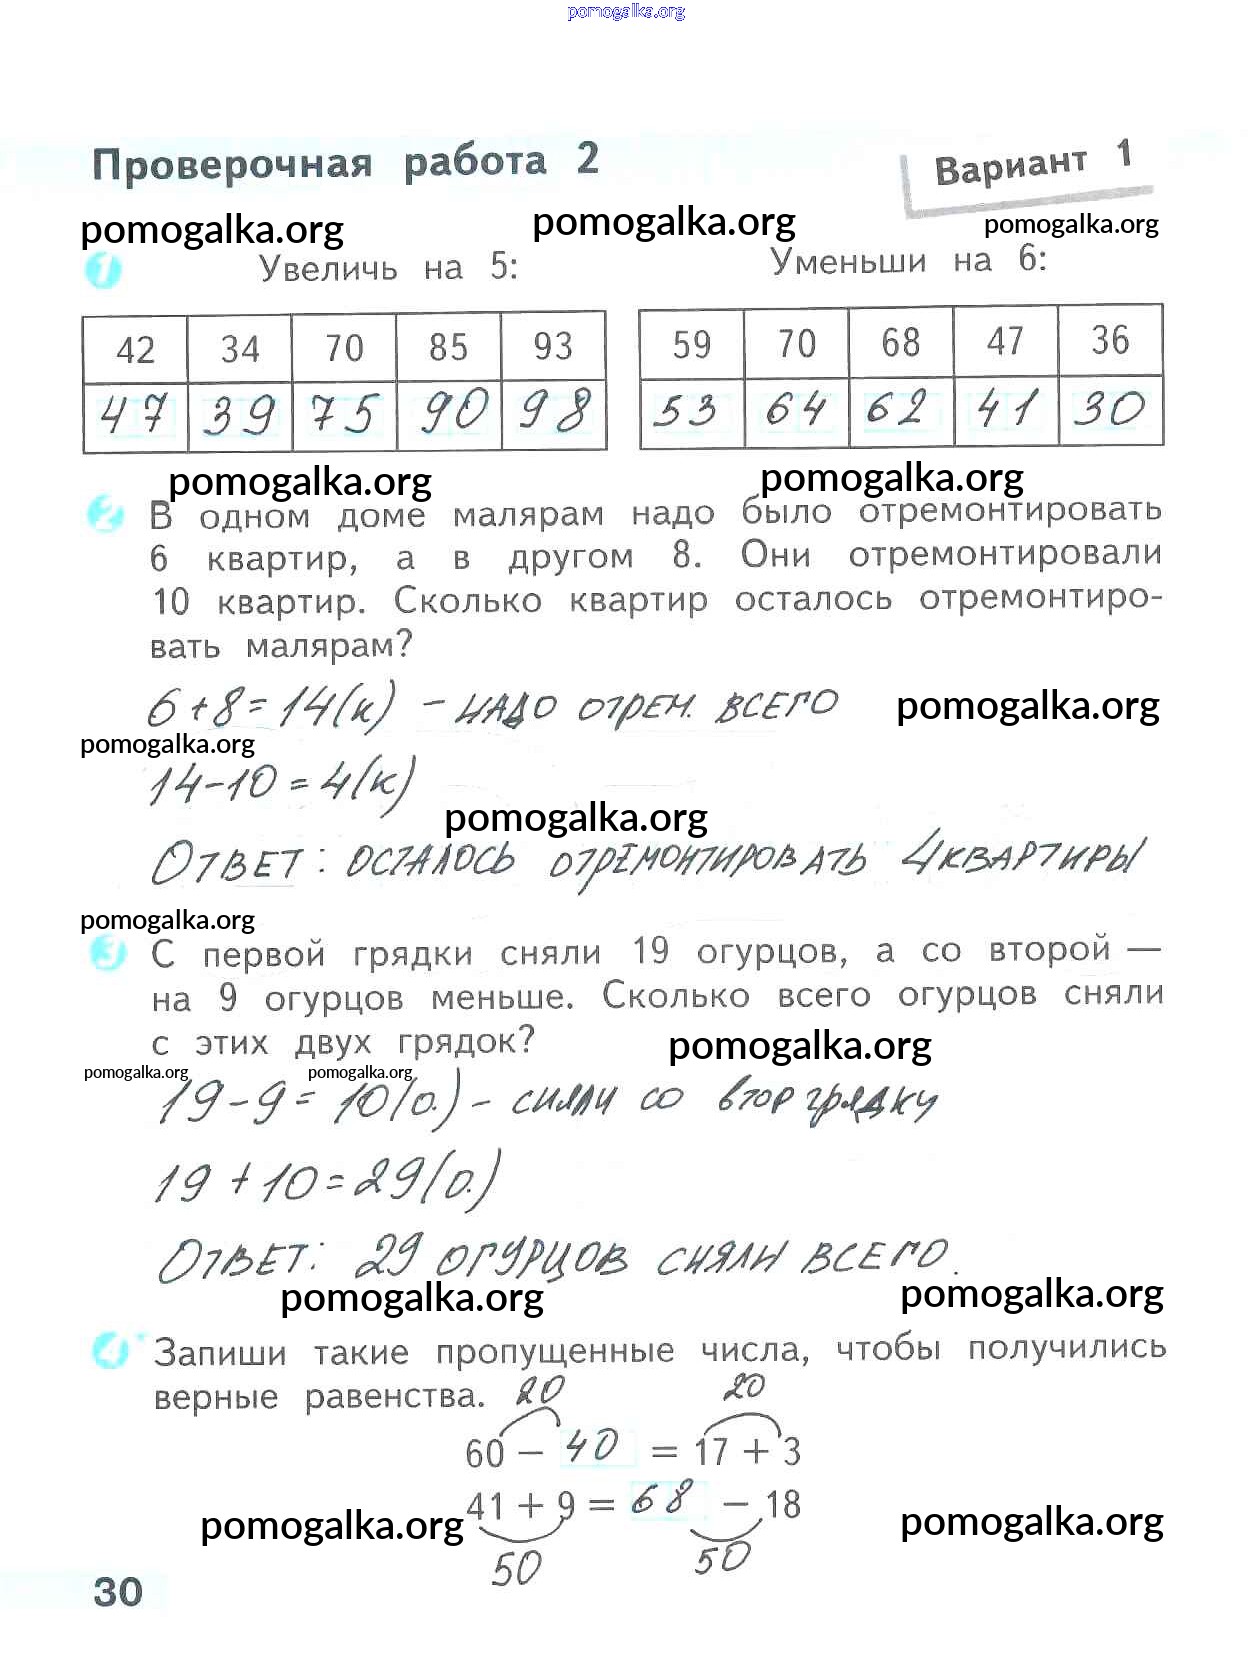 pomogalka.org
Проверочная работа 2
Вариант 1
pomogalka.org pomogalka.org pomogalka.org
1 Увеличь на 5: Уменьши на 6:
42 34 70 85 93 59 70 68 47 36
47 39 75 90 98 53 64 62 41 30
pomogalka.org pomogalka.org
2 В одном доме малярам надо было отремонтировать
6 квартир, а в другом 8. Они отремонтировали
10 квартир. Сколько квартир осталось отремонтиро-
вать малярам?
6+8=14(к) - НАДО ОТРЕМ. ВСЕГО pomogalka.org
pomogalka.org
14-10=4(к)
pomogalka.org
ОТВЕТ: ОСТАЛОСЬ ОТРЕМОНТИРОВАТЬ 4 КВАРТИРЫ
pomogalka.org
3 С первой грядки сняли 19 огурцов, а со второй —
на 9 огурцов меньше. Сколько всего огурцов сняли
с этих двух грядок? pomogalka.org
pomogalka.org pomogalka.org
19-9=10(о.) - сняли со втор грядку
19+10=29(о.)
ОТВЕТ: 29 ОГУРЦОВ СНЯЛИ ВСЕГО.
pomogalka.org pomogalka.org
4 Запиши такие пропущенные числа, чтобы получились
верные равенства. 20 20
60 – 40 = 17 + 3
41 + 9 = 68 – 18
pomogalka.org pomogalka.org
50 50
30